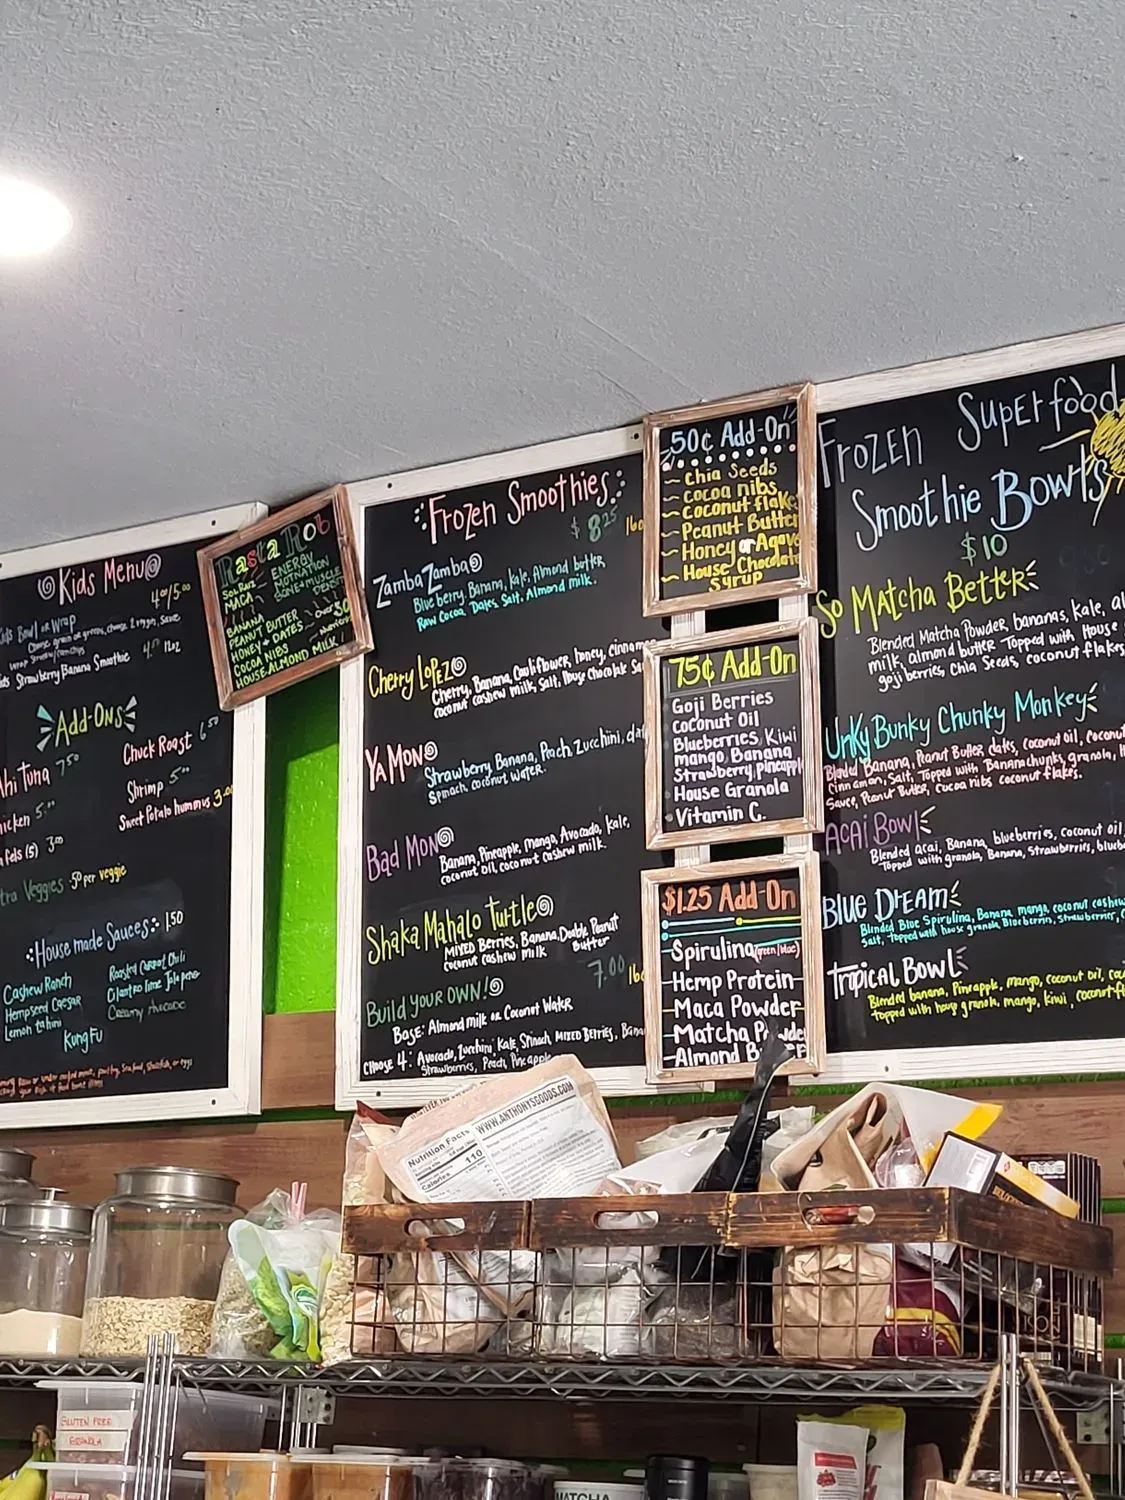 Kids Menu
4.00/5.00
Bowl or Wrap
Strawberry Banana Smoothie 4.00 12oz
Add-Ons
Ahi Tuna 7.50
Chuck Roast 6.50
Shrimp 5.00
Sweet Potato hummus 3.00
3.00
Veggies .50 per veggie
House made Sauces: 1.50
Cashew Ranch
Hempseed Caesar
Lemon tahini
Roasted Carrot Chili
Cilantro lime Jalapeno
Creamy Avocado
Kung Fu
Rasta Rob
MACA
ENERGY
MOTIVATION
BONE+MUSCLE
BANANA
PEANUT BUTTER
HONEY + DATES
COCOA NIBS
HOUSE ALMOND MILK
Frozen Smoothies
$ 8.25
Zamba Zamba
Blueberry, Banana, Kale, Almond butter
Raw Cocoa, Dates, Salt, Almond milk.
Cherry Lopez
Cherry, Banana, Cauliflower, honey,
coconut cashew milk, Salt, House Chocolate
Ya Mon
Strawberry, Banana, Peach, Zucchini,
Spinach, coconut water.
Bad Mon
Banana, Pineapple, mango, Avocado, kale,
coconut oil, coconut cashew milk.
Shaka Mahalo Turtle
MIXED Berries, Banana, Double Peanut
Butter
coconut cashew milk
7.00
Build your OWN!
Base: Almond milk or Coconut Water
Choose 4: Avocado, Zucchini, Kale, Spinach, MIXED BERRIES,
Strawberries, Peach, Pineapple
50¢ Add-On
Chia Seeds
cocoa nibs
coconut flakes
Peanut Butter
Honey or Agave
House Chocolate
Syrup
75¢ Add-On
Goji Berries
Coconut Oil
Blueberries, Kiwi
mango, Banana
Strawberry, pineapple
House Granola
Vitamin C.
$1.25 Add-On
Spirulina (green/blue)
Hemp Protein
Maca Powder
Matcha Powder
Almond
Frozen Superfood
Smoothie Bowls
$10
So Matcha Better
Blended Matcha Powder, bananas, kale,
milk, almond butter Topped with House
goji berries, Chia Seeds, coconut flakes
Unky Bunky Chunky Monkey
Blended Banana, Peanut Butter, dates, coconut oil,
cinnamon, Salt, Topped with Banana chunks, granola,
Sauce, Peanut Butter, cocoa nibs coconut flakes.
Acai Bowl
Blended acai, Banana, blueberries, coconut oil,
Topped with granola, Banana, strawberries,
Blue Dream
Blended Blue Spirulina, Banana, mango, coconut cashew
Salt, Topped with house granola, Blueberries, strawberries,
Tropical Bowl
Blended banana, Pineapple, mango, coconut oil,
topped with house granola, mango, kiwi,
WWW.ANTHONYSGOODS.COM
Nutrition Facts
Calories 110
GLUTEN FREE
GRANOLA
MATCHA